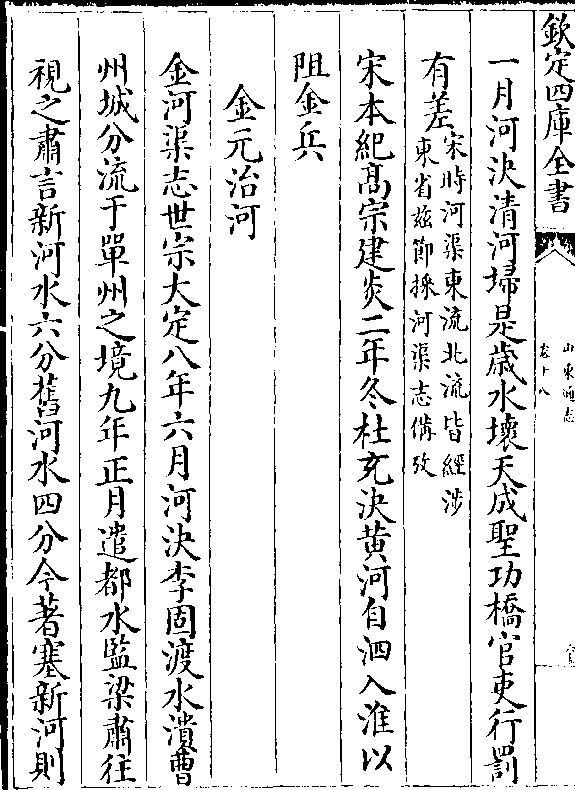 欽定四庫全書
山東通志
卷十八
一月河決清河埽是歲水壞天成聖功橋官吏行罰
有差宋時河渠東流北流皆經涉
東省茲節採河渠志備攷
宋本紀髙宗建炎二年冬杜充決黄河自泗入淮以
阻金兵
金元治河
金河渠志世宗大定八年六月河決李固渡水潰曹
州城分流于單州之境九年正月遣都水監梁肅往
視之肅言新河水六分舊河水四分今著塞新河則